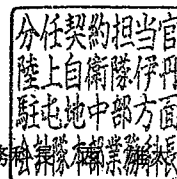 分任契約担当官
陸上自衛隊伊丹
駐屯地中部方面